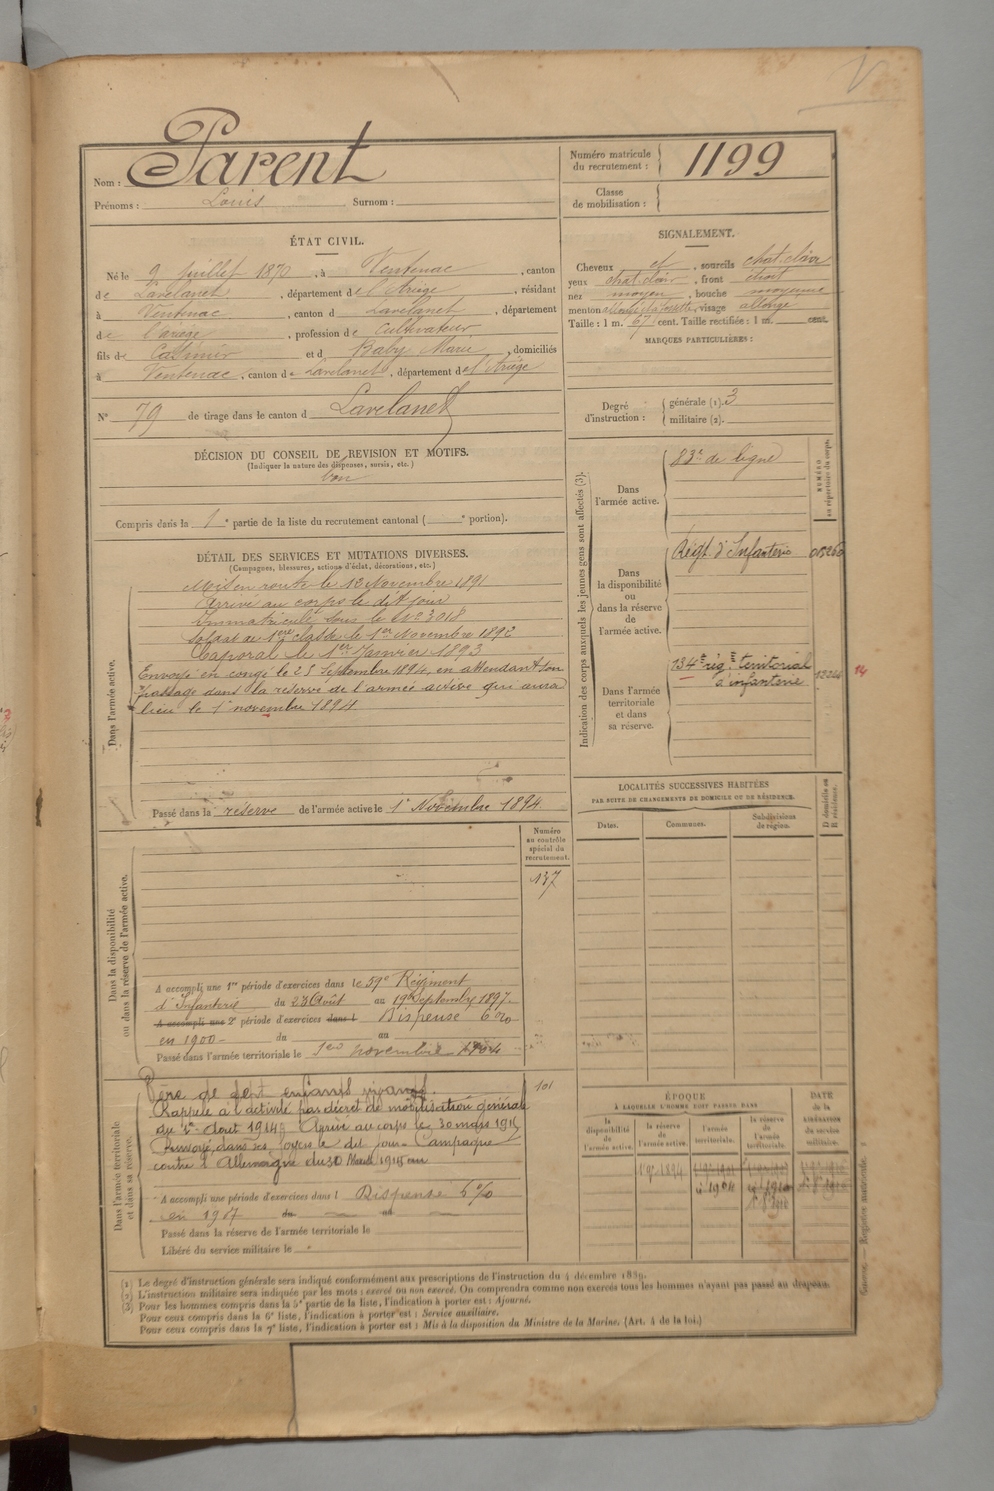 Nom : Parent
Prénoms : Louis Surnom :
Numéro matricule du recrutement : 1199
Classe de mobilisation :
ÉTAT CIVIL.
Né le 9 juillet 1870, à Ventenac, canton
de Lavelanet, département de l'Ariège, résidant
à Ventenac, canton d Lavelanet, département
de l'ariège, profession de Cultivateur
fils de Casimir et d Baby Marie, domiciliés
à Ventenac, canton de Lavelanet, département de l'Ariège
N° 79 de tirage dans le canton d Lavelanet
SIGNALEMENT.
Cheveux et, sourcils chat. clair
yeux chat. clair, front étroit
nez moyen, bouche moyenne
menton à fossette, visage allongé
Taille : 1 m. 67 cent. Taille rectifiée : 1 m. cent.
MARQUES PARTICULIÈRES :
Degré d'instruction : générale (1). 3
militaire (2).
DÉCISION DU CONSEIL DE REVISION ET MOTIFS.
(Indiquer la nature des dispenses, sursis, etc.)
bon
Compris dans la 1e partie de la liste du recrutement cantonal ( e portion).
DÉTAIL DES SERVICES ET MUTATIONS DIVERSES.
(Campagnes, blessures, actions d'éclat, décorations, etc.)
Dans l'armée active.
Mis en route le 13 Novembre 1891
Arrivé au corps le dit jour
Immatriculé sous le No 3018
Soldat de 1ère classe le 1er Novembre 1892
Caporal le 1er Janvier 1893
Envoyé en congé le 25 Septembre 1894, en attendant son
passage dans la réserve de l'armée active qui aura
lieu le 1 novembre 1894
Passé dans la réserve de l'armée active le 1er Novembre 1894
Indication des corps auxquels les jeunes gens sont affectés (3).
NUMÉRO au répertoire du corps.
Dans l'armée active.
83e de ligne
Dans la disponibilité ou dans la réserve de l'armée active.
Régt d'Infanterie 015260
Dans l'armée territoriale et dans sa réserve.
134e rég.t territorial
d'infanterie
14
LOCALITÉS SUCCESSIVES HABITÉES
PAR SUITE DE CHANGEMENTS DE DOMICILE OU DE RÉSIDENCE.
Dates. Communes. Subdivisions de région. D domicile ou R résidence.
Numéro au contrôle spécial du recrutement.
137
Dans la disponibilité ou dans la réserve de l'armée active.
A accompli une 1re période d'exercices dans le 59e Régiment
d'Infanterie du 23 Août au 19 Septembre 1897.
A accompli une 2e période d'exercices dans l Dispense 6 %
en 1900 - du au
Passé dans l'armée territoriale le 1er novembre 1904
101
Dans l'armée territoriale et dans sa réserve.
Père de sept enfants vivants.
Rappelé à l'activité par décret de mobilisation générale
du 1er Aout 1914. Arrivé au corps le 30 mars 1915
Renvoyé dans ses foyers le dit jour - Campagne
contre l'Allemagne du 30 Mars 1915 au
A accompli une période d'exercices dans l Dispense 6 %
en 1907 du au
Passé dans la réserve de l'armée territoriale le
Libéré du service militaire le
ÉPOQUE
À LAQUELLE L'HOMME DOIT PASSER DANS
DATE de la LIBÉRATION du service militaire.
la disponibilité de l'armée active. la réserve de l'armée active. l'armée territoriale. la réserve de l'armée territoriale.
1 9bre 1894
(1) Le degré d'instruction générale sera indiqué conformément aux prescriptions de l'instruction du 4 décembre 1889.
(2) L'instruction militaire sera indiquée par les mots : exercé ou non exercé. On comprendra comme non exercés tous les hommes n'ayant pas passé au drapeau.
(3) Pour les hommes compris dans la 5e partie de la liste, l'indication à porter est : Ajourné.
Pour ceux compris dans la 6e liste, l'indication à porter est : Service auxiliaire.
Pour ceux compris dans la 7e liste, l'indication à porter est : Mis à la disposition du Ministre de la Marine. (Art. 4 de la loi.)